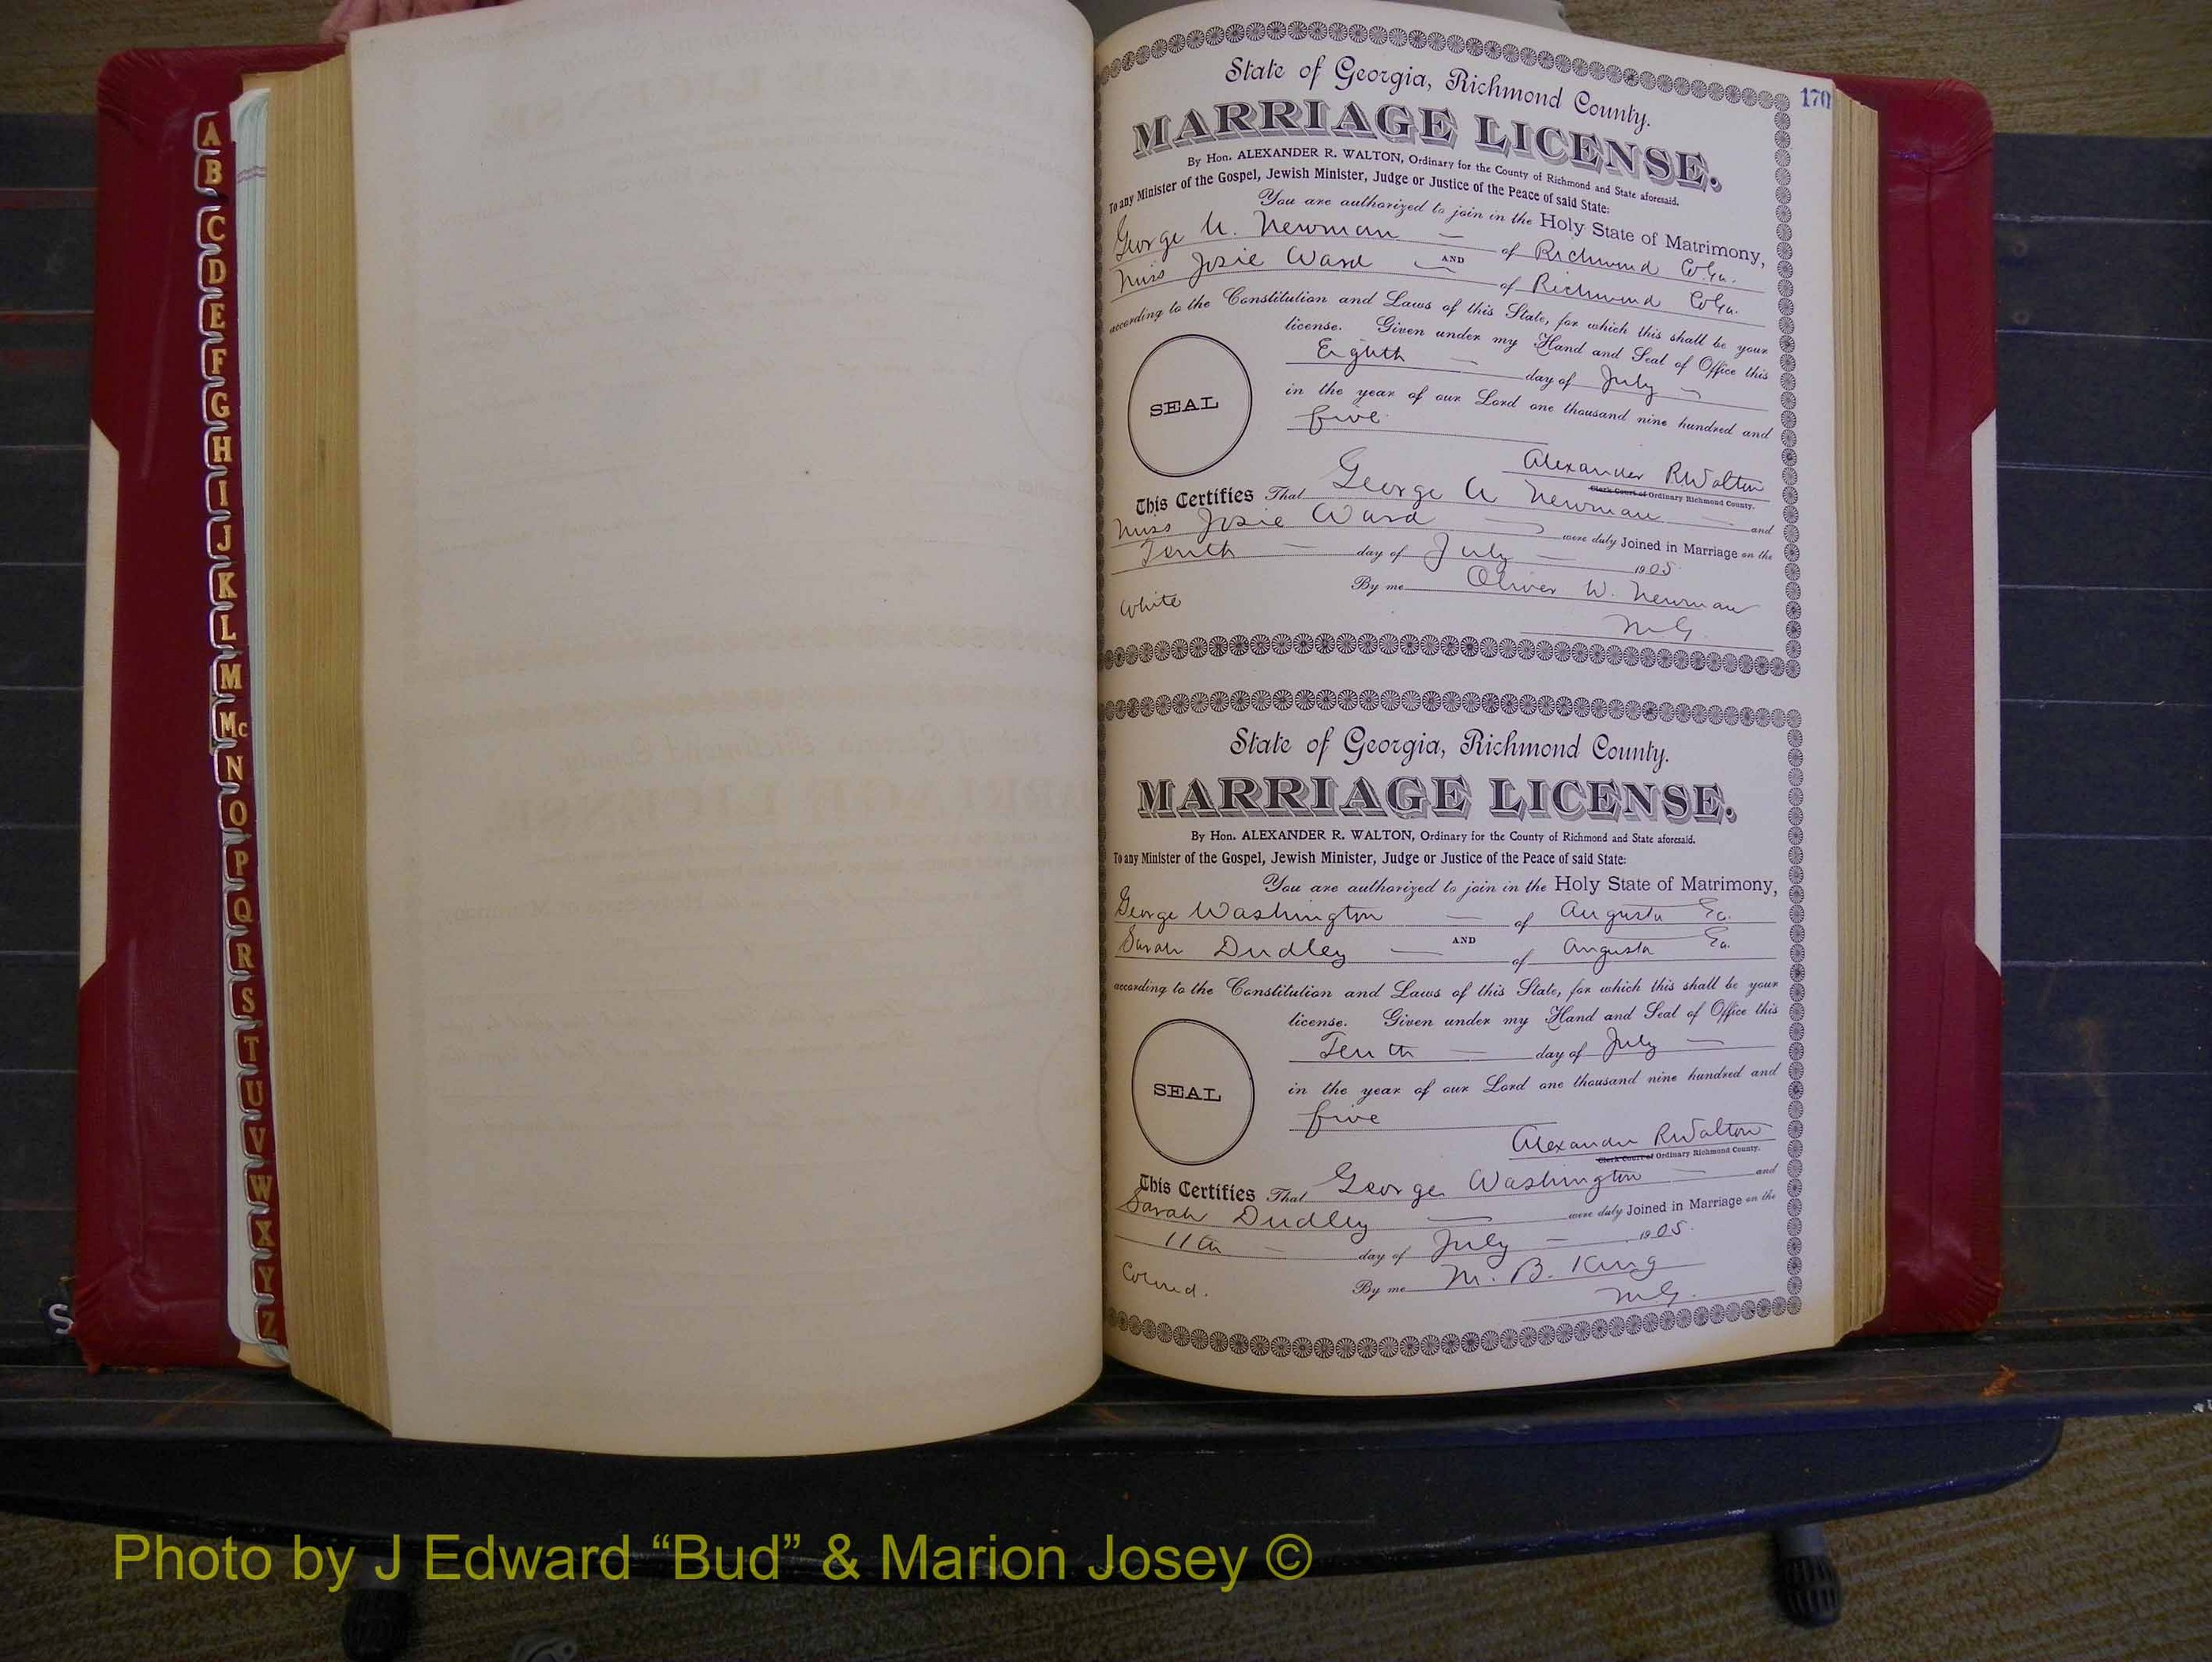 A
B
C
D
E
F
G
H
I
J
K
L
M
Mc
N
O
P
Q
R
S
T
U
V
W
X
Y
Z
S
170
State of Georgia, Richmond County.
MARRIAGE LICENSE.
By Hon. ALEXANDER R. WALTON, Ordinary for the County of Richmond and State aforesaid.
To any Minister of the Gospel, Jewish Minister, Judge or Justice of the Peace of said State:
You are authorized to join in the Holy State of Matrimony,
George A. Newman — of Richmond Co Ga.
AND
Miss Josie Ward — of Richmond Co Ga.
according to the Constitution and Laws of this State, for which this shall be your
license. Given under my Hand and Seal of Office this
Eighth — day of July —
in the year of our Lord one thousand nine hundred and
five
SEAL
Alexander R Walton
Clerk Court of Ordinary Richmond County.
This Certifies That George A Newman — and
Miss Josie Ward — were duly Joined in Marriage on the
Tenth — day of July — 1905.
By me Oliver W. Newman
White
M.G.
State of Georgia, Richmond County.
MARRIAGE LICENSE.
By Hon. ALEXANDER R. WALTON, Ordinary for the County of Richmond and State aforesaid.
To any Minister of the Gospel, Jewish Minister, Judge or Justice of the Peace of said State:
You are authorized to join in the Holy State of Matrimony,
George Washington — of Augusta Ga.
AND
Sarah Dudley — of Augusta Ga.
according to the Constitution and Laws of this State, for which this shall be your
license. Given under my Hand and Seal of Office this
Tenth — day of July —
in the year of our Lord one thousand nine hundred and
five
SEAL
Alexander R Walton
Clerk Court of Ordinary Richmond County.
This Certifies That George Washington — and
Sarah Dudley — were duly Joined in Marriage on the
11th — day of July — 1905.
Colored. By me M. B. King
M.G.
Photo by J Edward “Bud” & Marion Josey ©